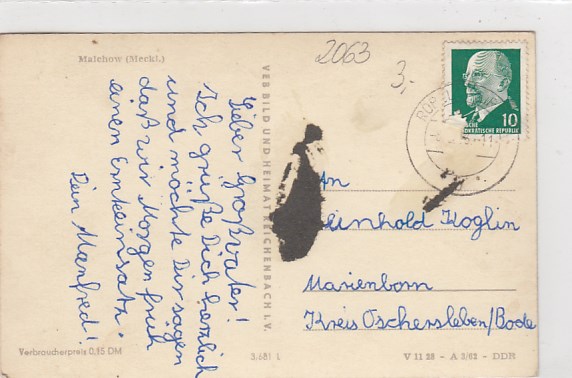 Malchow (Meckl.)
2063
3,-
Lieber Großvater!
Ich grüße Dich herzlich
und möchte Dir sagen
daß wir Morgen früh
einen Ernteeinsatz
Dein Manfred!
VEB BILD UND HEIMAT REICHENBACH I. V.
10
DEMOKRATISCHE REPUBLIK
An
Reinhold Koglin
Marienborn
Kreis Oschersleben/Bode
Verbraucherpreis 0,15 DM
3.681 L
V 11 28 - A 3/63 - DDR